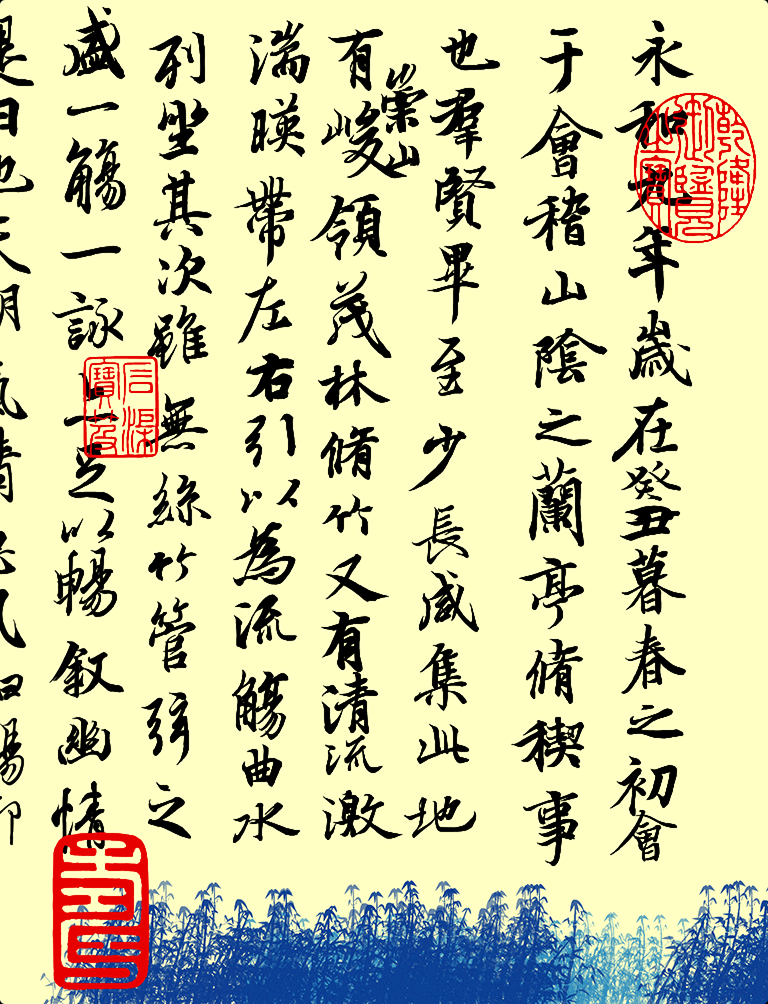 永和九年歲在癸丑暮春之初會
于會稽山陰之蘭亭脩稧事
也羣賢畢至少長咸集此地
有崇山峻領茂林脩竹又有清流激
湍暎帶左右引以為流觴曲水
列坐其次雖無絲竹管弦之
盛一觴一詠亦足以暢叙幽情
是日也天朗氣清惠風和暢仰
乾隆御覽之寶
石渠寶笈